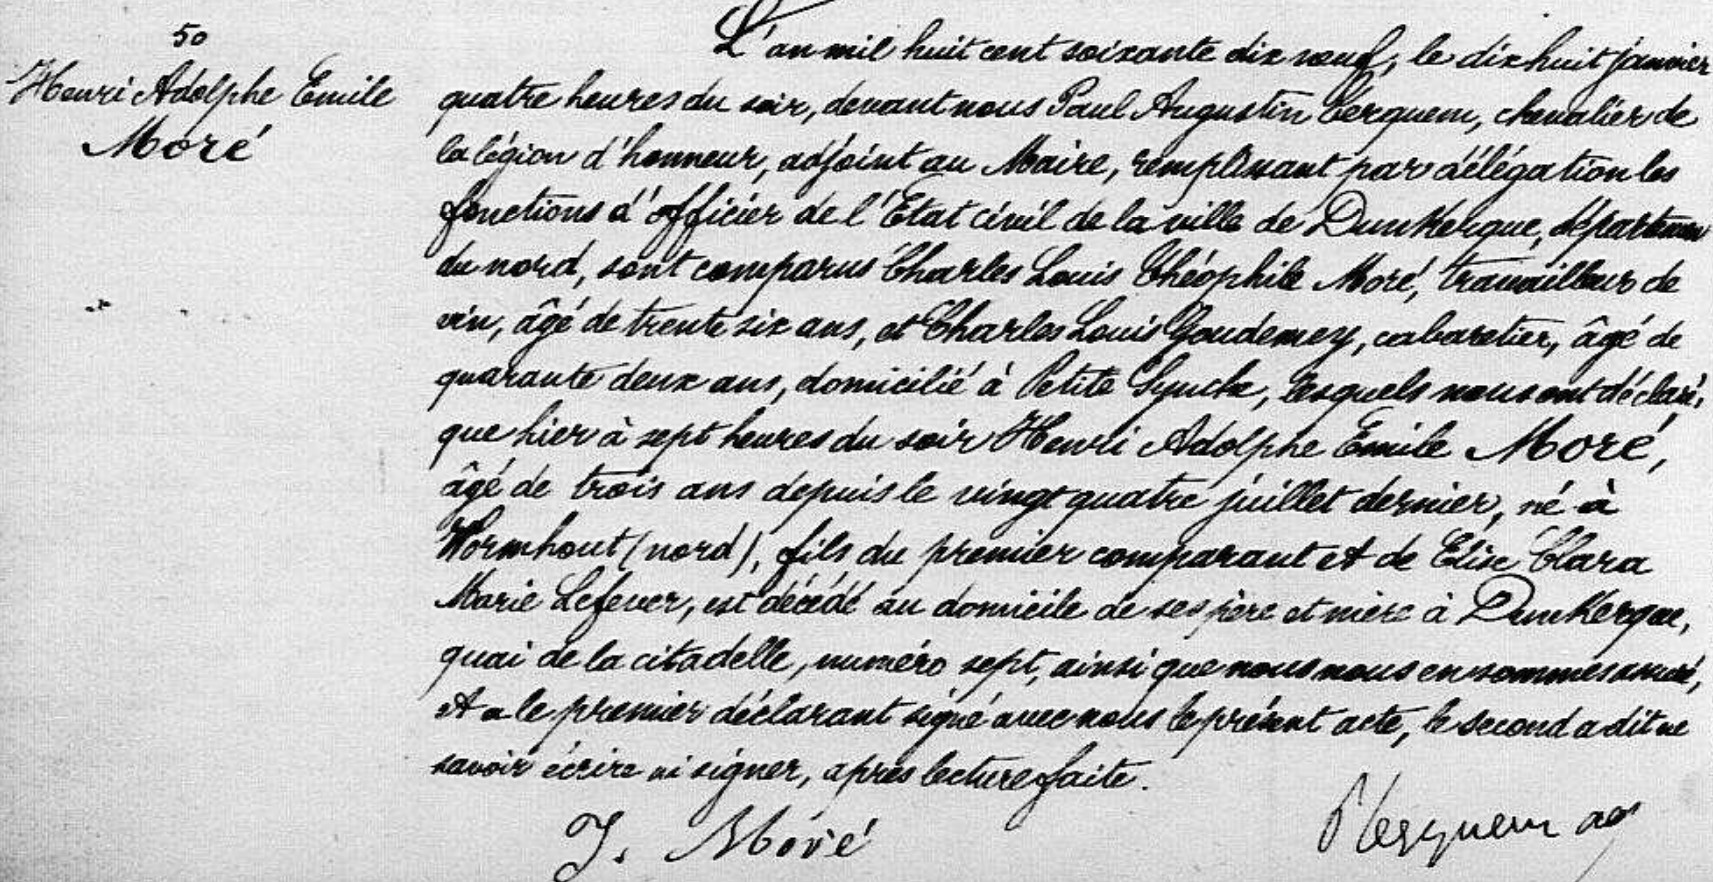 50
Henri Adolphe Emile
Moré
L'an mil huit cent soixante dix neuf, le dix huit janvier
quatre heures du soir, devant nous Paul Augustin Terquem, chevalier de
la légion d'honneur, adjoint au Maire, remplissant par délégation les
fonctions d'officier de l'Etat civil de la ville de Dunkerque, département
du nord, sont comparus Charles Louis Théophile Moré, travailleur de
vin, âgé de trente six ans, et Charles Louis Goudemey, cabaretier, âgé de
quarante deux ans, domicilié à Petite Synthe, lesquels nous ont déclaré,
que hier à sept heures du soir Henri Adolphe Emile Moré,
âgé de trois ans depuis le vingt quatre juillet dernier, né à
Wormhout (nord), fils du premier comparant et de Elise Clara
Marie Lefever, est décédé au domicile de ses père et mère à Dunkerque,
quai de la citadelle, numéro sept, ainsi que nous nous en sommes assuré,
et a le premier déclarant signé avec nous le présent acte, le second a dit ne
savoir écrire ni signer, après lecture faite.
T. Moré
PTerquem ad